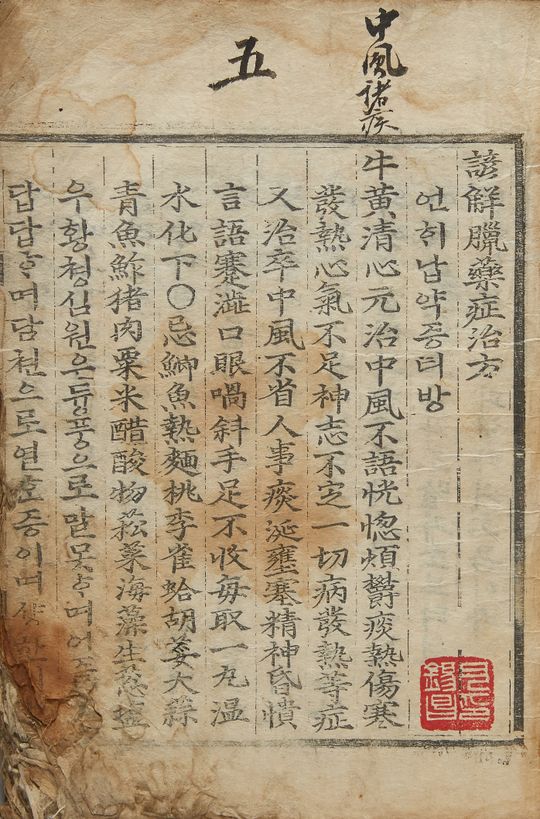 中風諸疾
五
諺解臘藥症治方
언ᄒᆡ납약증티방
牛黃清心元治中風不語恍惚煩鬱痰熱傷寒
發熱心氣不足神志不定一切病發熱等症
又治卒中風不省人事痰涎壅塞精神昏憒
言語蹇澁口眼喎斜手足不收每取一丸温
水化下〇忌鯽魚熱麵桃李雀蛤胡荽大蒜
青魚鮓猪肉粟米醋酸物菘菜海藻生葱
우황쳥심원은듕풍으로말못ᄒᆞ며어
답답ᄒᆞ며담쳔으로열호증이며